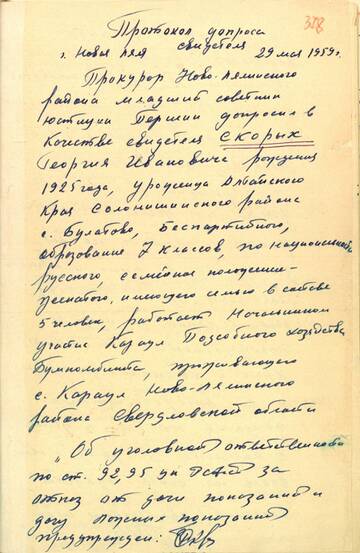 358
Протокол допроса
свидетеля
г. Новая ляля 29 мая 1959 г.
Прокурор Ново-лялинского
района младший советник
юстиции Першин допросил в
качестве свидетеля Скорых
Георгия Ивановича рождения
1925 года, уроженца Алтайского
края Солонишинского района
с. Булатово, беспартийного,
образование 7 классов, по национальности
русского, семейное положение-
женатого, имеющего семью в составе
5 человек, работает начальником
участка Караул Подсобного хозяйства
Бумкомбината, проживающего
с. Караул Ново-лялинского
района Свердловской области
„Об уголовной ответственности
по ст. 92, 95 УК РСФСР за
отказ от дачи показаний и
дачу ложных показаний
предупрежден: